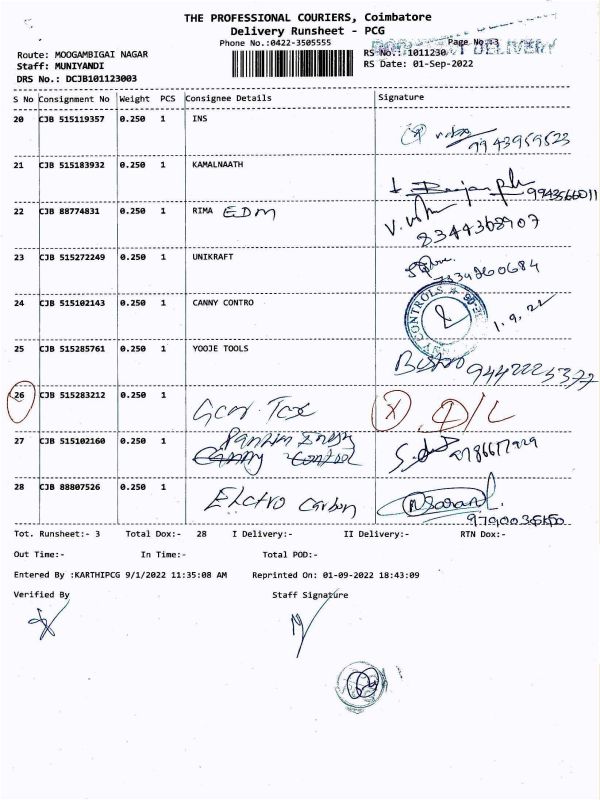 THE PROFESSIONAL COURIERS, Coimbatore
Delivery Runsheet - PCG
Phone No.:0422-3505555 Page No.:3
Route: MOOGAMBIGAI NAGAR RS No.: 1011230
Staff: MUNIYANDI RS Date: 01-Sep-2022
DRS No.: DCJB101123003
S No Consignment No Weight PCS Consignee Details Signature
20 CJB 515119357 0.250 1 INS
21 CJB 515183932 0.250 1 KAMALNAATH
22 CJB 88774831 0.250 1 RIMA EDM
8344368907
23 CJB 515272249 0.250 1 UNIKRAFT
24 CJB 515102143 0.250 1 CANNY CONTRO
CONTROLS 1.9.22
25 CJB 515285761 0.250 1 YOOJE TOOLS
26 CJB 515283212 0.250 1
27 CJB 515102160 0.250 1
Canny Control
28 CJB 88807526 0.250 1 Elctro Carbon
Tot. Runsheet:- 3 Total Dox:- 28 I Delivery:- II Delivery:- RTN Dox:-
Out Time:- In Time:- Total POD:-
Entered By :KARTHIPCG 9/1/2022 11:35:08 AM Reprinted On: 01-09-2022 18:43:09
Verified By Staff Signature